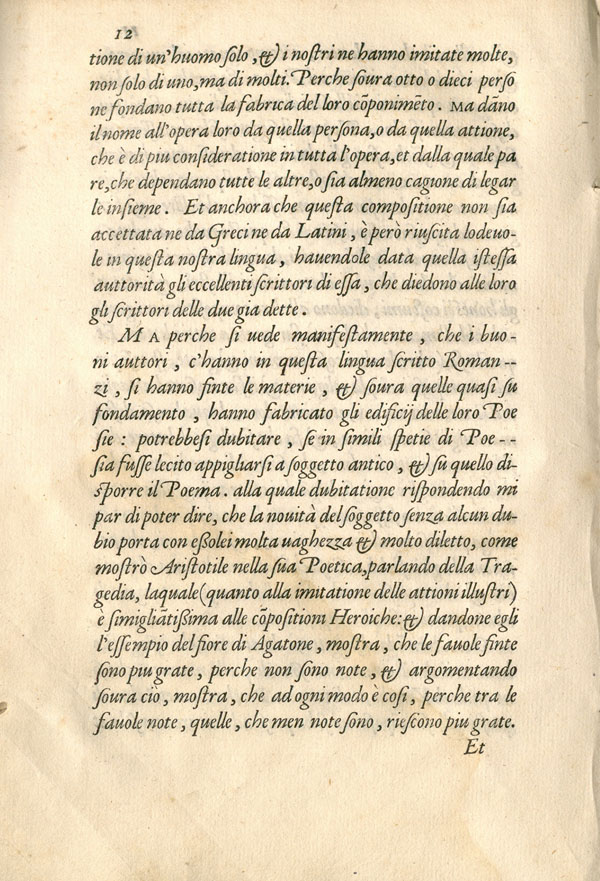 12
tione di un'huomo solo, & i nostri ne hanno imitate molte,
non solo di uno, ma di molti. Perche soura otto o dieci perso
ne fondano tutta la fabrica del loro cōponimēto. MA dāno
il nome all'opera loro da quella persona, o da quella attione,
che è di piu consideratione in tutta l'opera, et dalla quale pa
re, che dependano tutte le altre, o sia almeno cagione di legar
le insieme. Et anchora che questa compositione non sia
accettata ne da Greci ne da Latini, è però riuscita lodeuo-
le in questa nostra lingua, hauendole data quella istessa
autorità gli eccellenti scrittori di essa, che diedono alle loro
gli scrittori delle due gia dette.
MA perche si uede manifestamente, che i buo-
ni auttori, c'hanno in questa lingua scritto Roman--
zi, si hanno finte le materie, & soura quelle quasi su
fondamento, hanno fabricato gli edificij delle loro Poe
sie: potrebbesi dubitare, se in simili spetie di Poe--
sia fusse lecito appigliarsi a soggetto antico, & su quello di-
sporre il Poema. alla quale dubitatione rispondendo mi
par di poter dire, che la nouità del soggetto senza alcun du-
bio porta con essolei molta uaghezza & molto diletto, come
mostrò Aristotile nella sua Poetica, parlando della Tra-
gedia, laquale (quanto alla imitatione delle attioni illustri)
è simigliātissima alle cōpositioni Heroiche: & dandone egli
l'essempio del fiore di Agatone, mostra, che le fauole finte
sono piu grate, perche non sono note, & argomentando
soura ciò, mostra, che ad ogni modo è cosi, perche tra le
fauole note, quelle, che men note sono, riescono piu grate.
Et